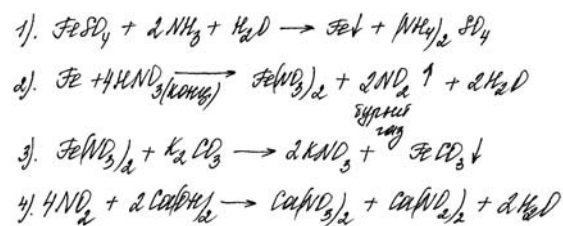 1). FeSO₄ + 2NH₃ + H₂O ⟶ Fe↓ + (NH₄)₂SO₄
2). Fe + 4HNO₃(конц) ⟶ Fe(NO₃)₂ + 2NO₂ ↑ + 2H₂O
бурый
газ
3). Fe(NO₃)₂ + K₂CO₃ ⟶ 2KNO₃ + FeCO₃↓
4). 4NO₂ + 2Ca(OH)₂ ⟶ Ca(NO₃)₂ + Ca(NO₂)₂ + 2H₂O